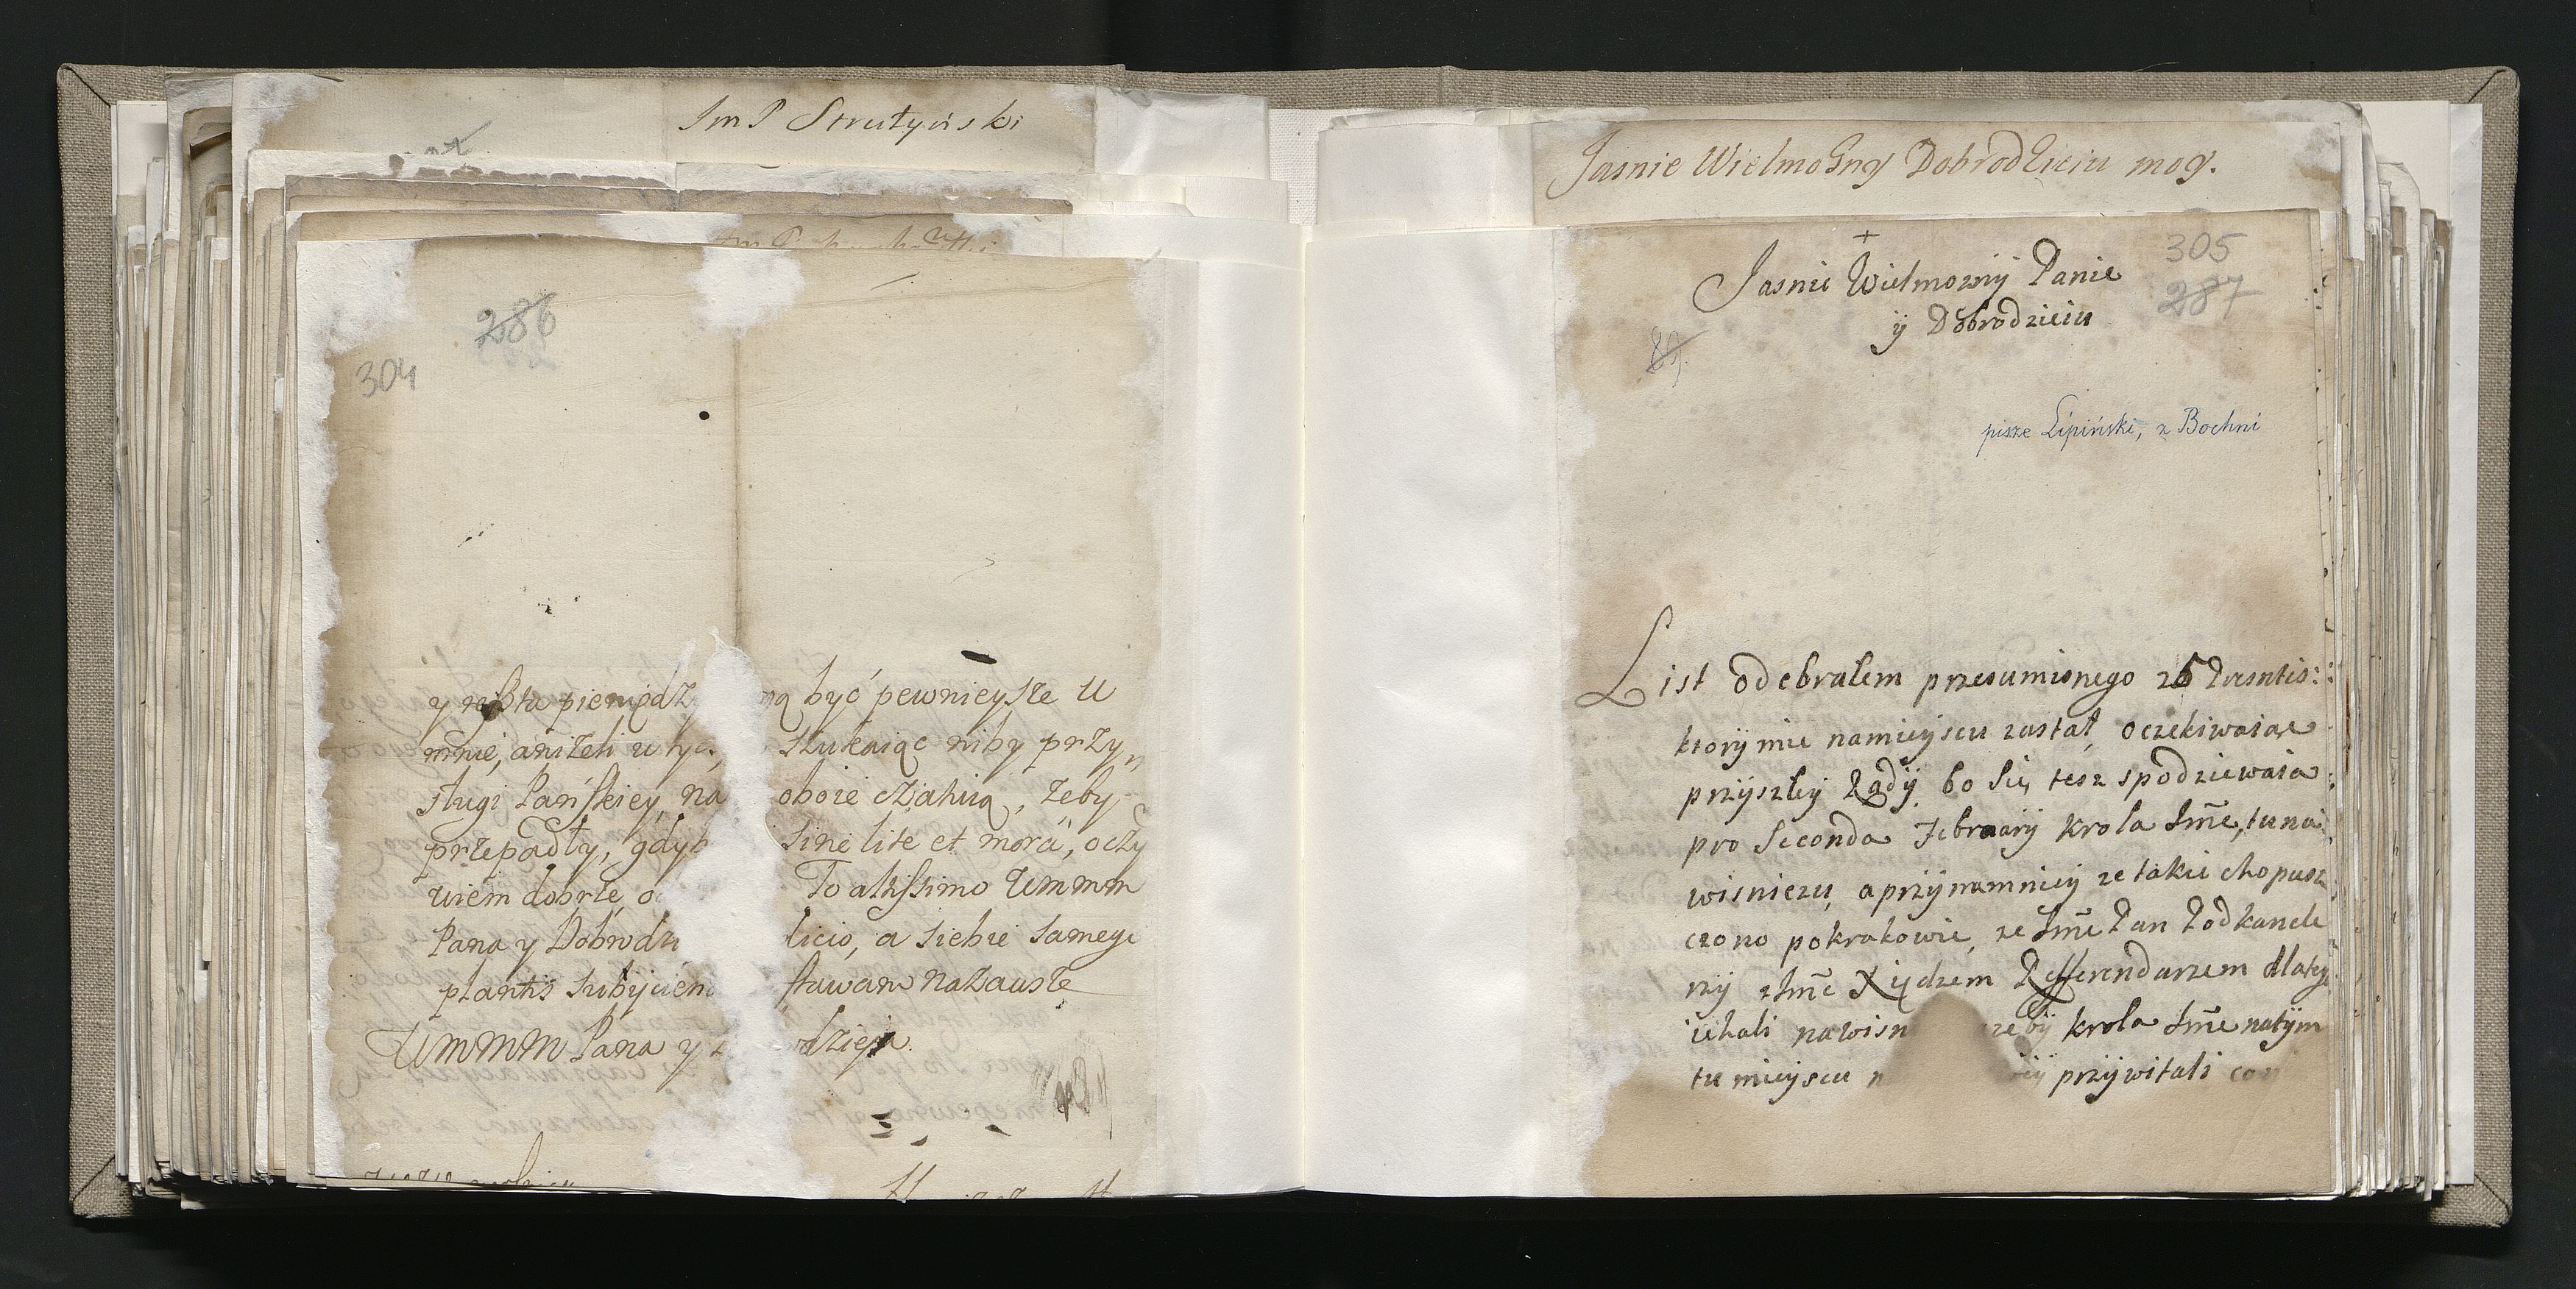 Im P Strutyński
286
304
y reszta pieniędzy być pewnieysze u
mnie, aniżeli u szukaiąc niby przy,,
sługi Pańskiey, na oboie czahuią, żeby
przepadły, gdyb sine lite et mora, oczy
wiem dobrze, o To altissimo Ummm
Pana y Dobrodzi licio, a siebie samego
plantis subycien stawam nazausze
Ummm Pana y dzieja.
Jasnie Wielmożny Dobrodzieiu moy.
+
305
287
Jasnie Wielmozny Panie
ÿ Dobrodzieiu
89.
pisze Lipiński, z Bochni
List odebralem przesumionego 26 Presentis:
ktorÿ mie namieyscu zastał, oczekiwaiąc
przÿszleÿ Radÿ, bo Się tesz spodziewaia
pro Seconda Februarÿ krola Jme, tuna
wisniczu, a przÿnamnieÿ ze takie chopusz
czono pokrakowie, ze Jme Pan Podkancle
rzÿ z Jme Xiędzem Refferendarzem dlateg
iehali nawisn zebÿ krola Jme natÿm
tu mieyscu przÿwitali